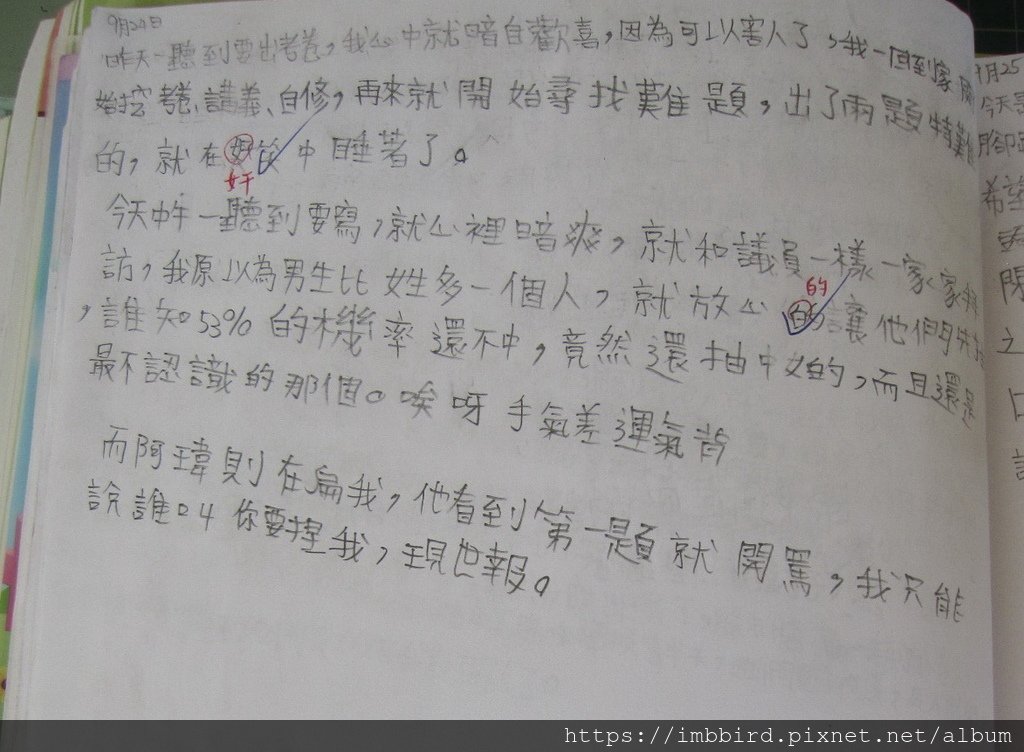 9月24日
昨天一聽到要出考卷，我心中就暗自歡喜，因為可以害人了，我一回到家
始挖考卷、講義、自修，再來就開始尋找難題，出了兩題特難
的，就在奸笑中睡著了。
奸
今天中午一聽到要寫，就心裡暗爽，就和議員一樣一家家
訪，我原以為男生比姓多一個人，就放心的讓他們先
的
，誰知53%的機率還不中，竟然還抽中女的，而且還是
最不認識的那個。唉呀手氣差運氣背
而阿瑋則在扁我，他看到第一題就開罵，我只能
說誰叫你要捏我，現世報。
9月25
今天
希望
之
https://imbbird.pixnet.net/album